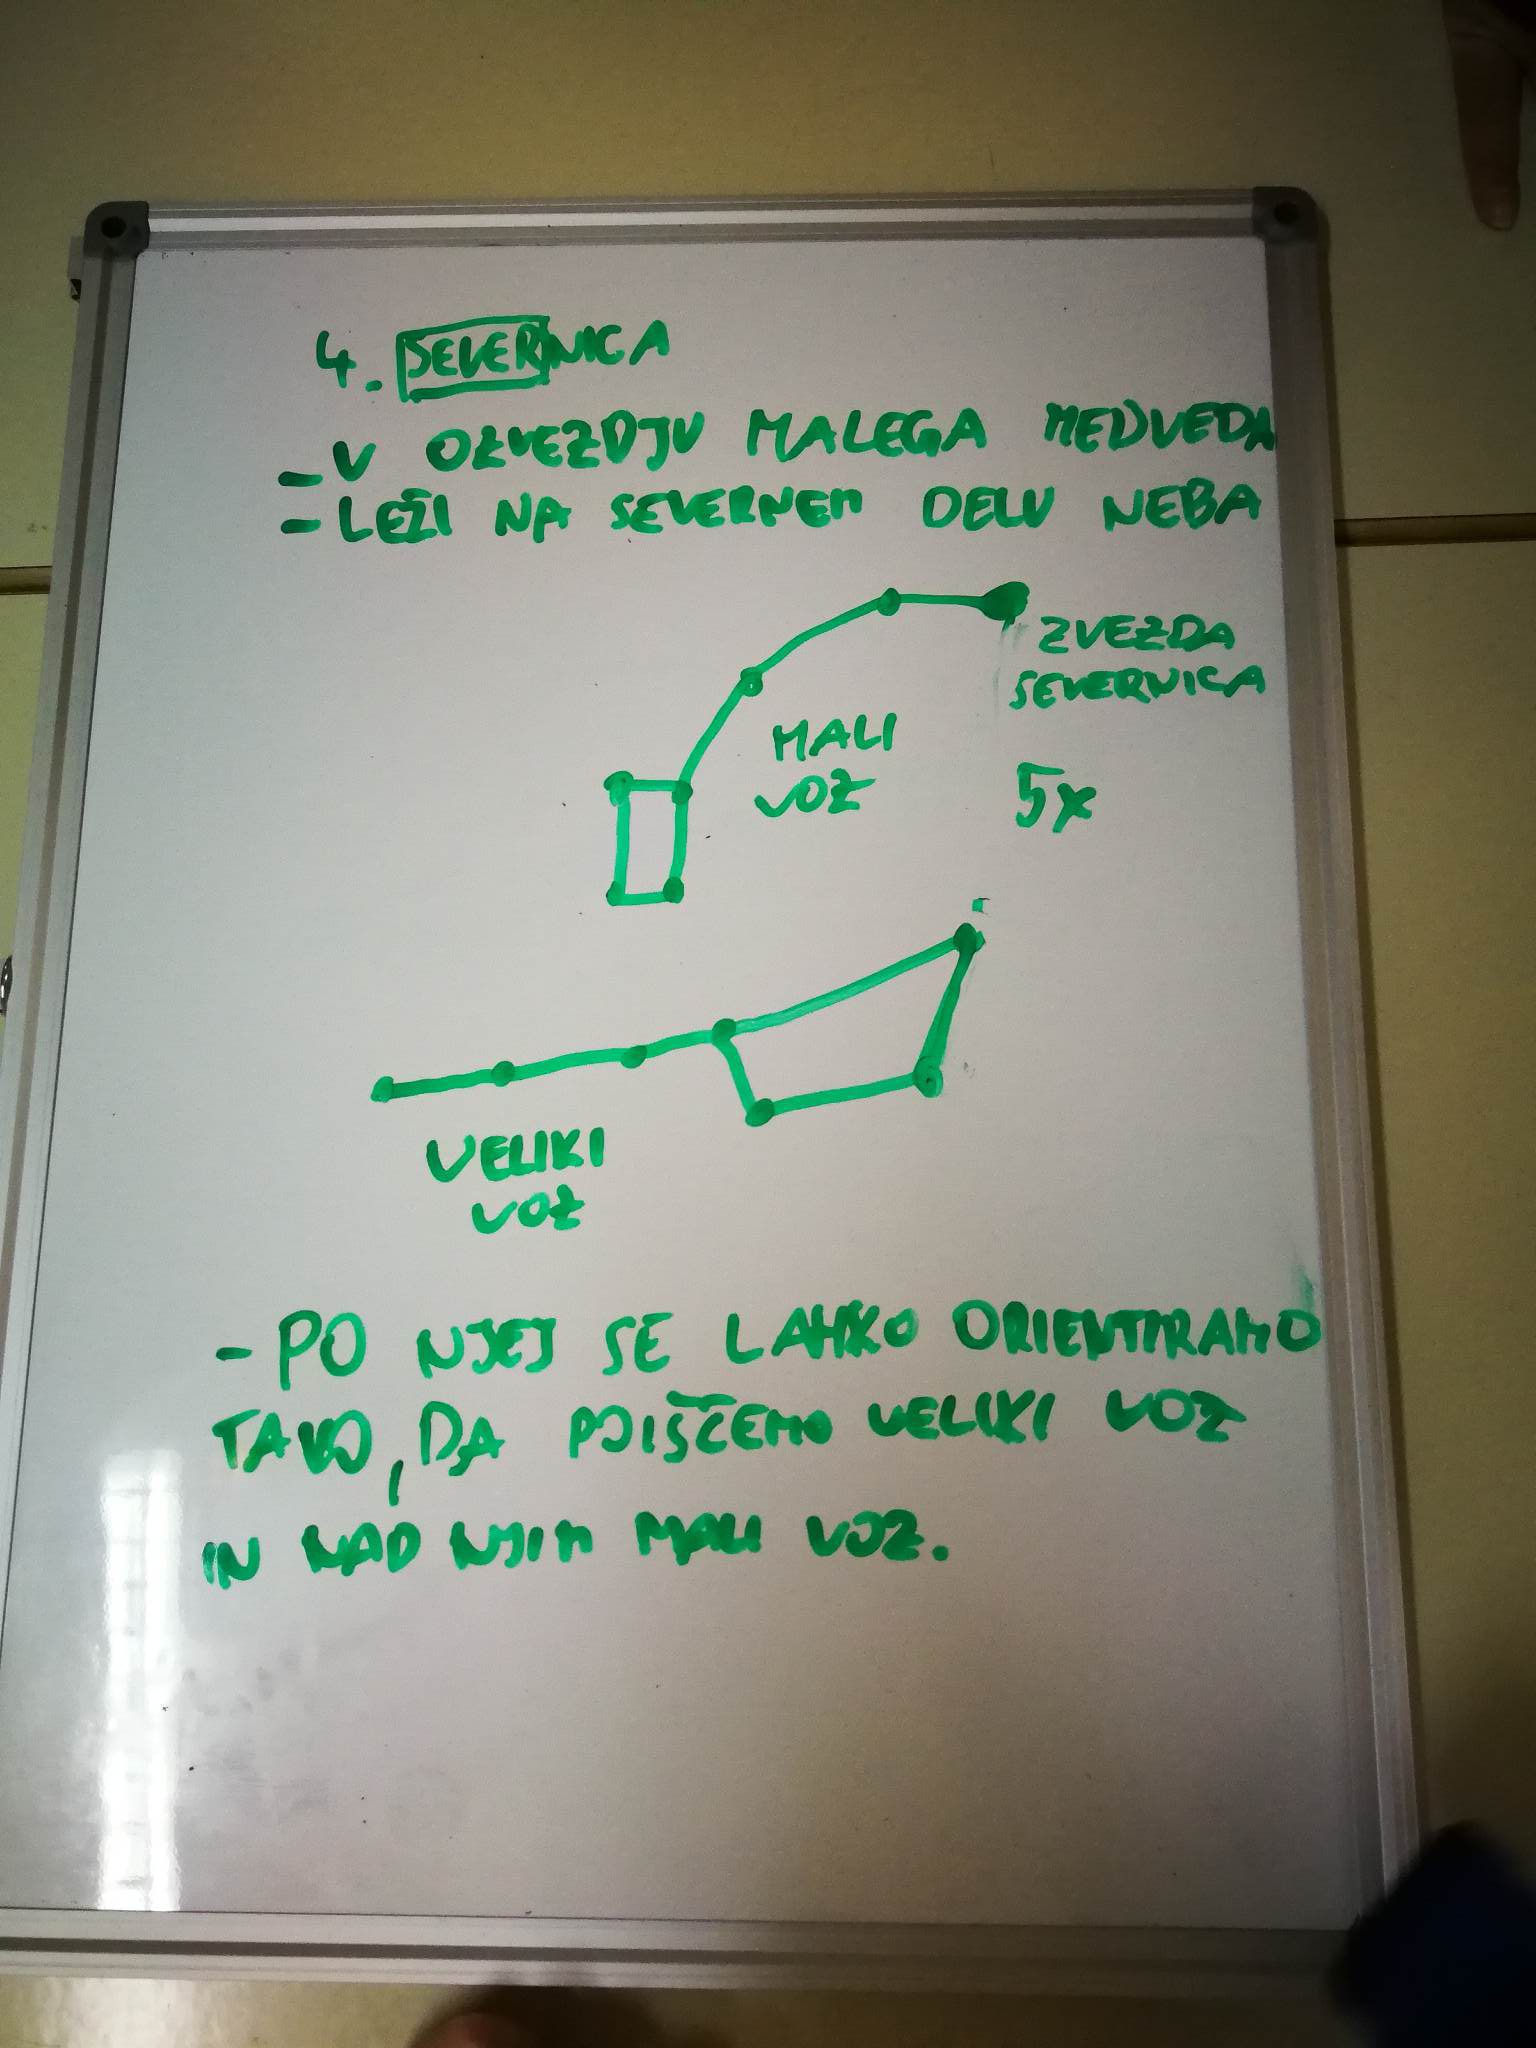 4. SEVERNICA
- V OZVEZDJU MALEGA MEDVEDA
- LEŽI NA SEVERNEM DELU NEBA
ZVEZDA
SEVERNICA
MALI
VOZ
5x
VELIKI
VOZ
- PO NJEJ SE LAHKO ORIENTIRAMO
TAKO, DA POIŠČEMO VELIKI VOZ
IN NAD NJIM MALI VOZ.